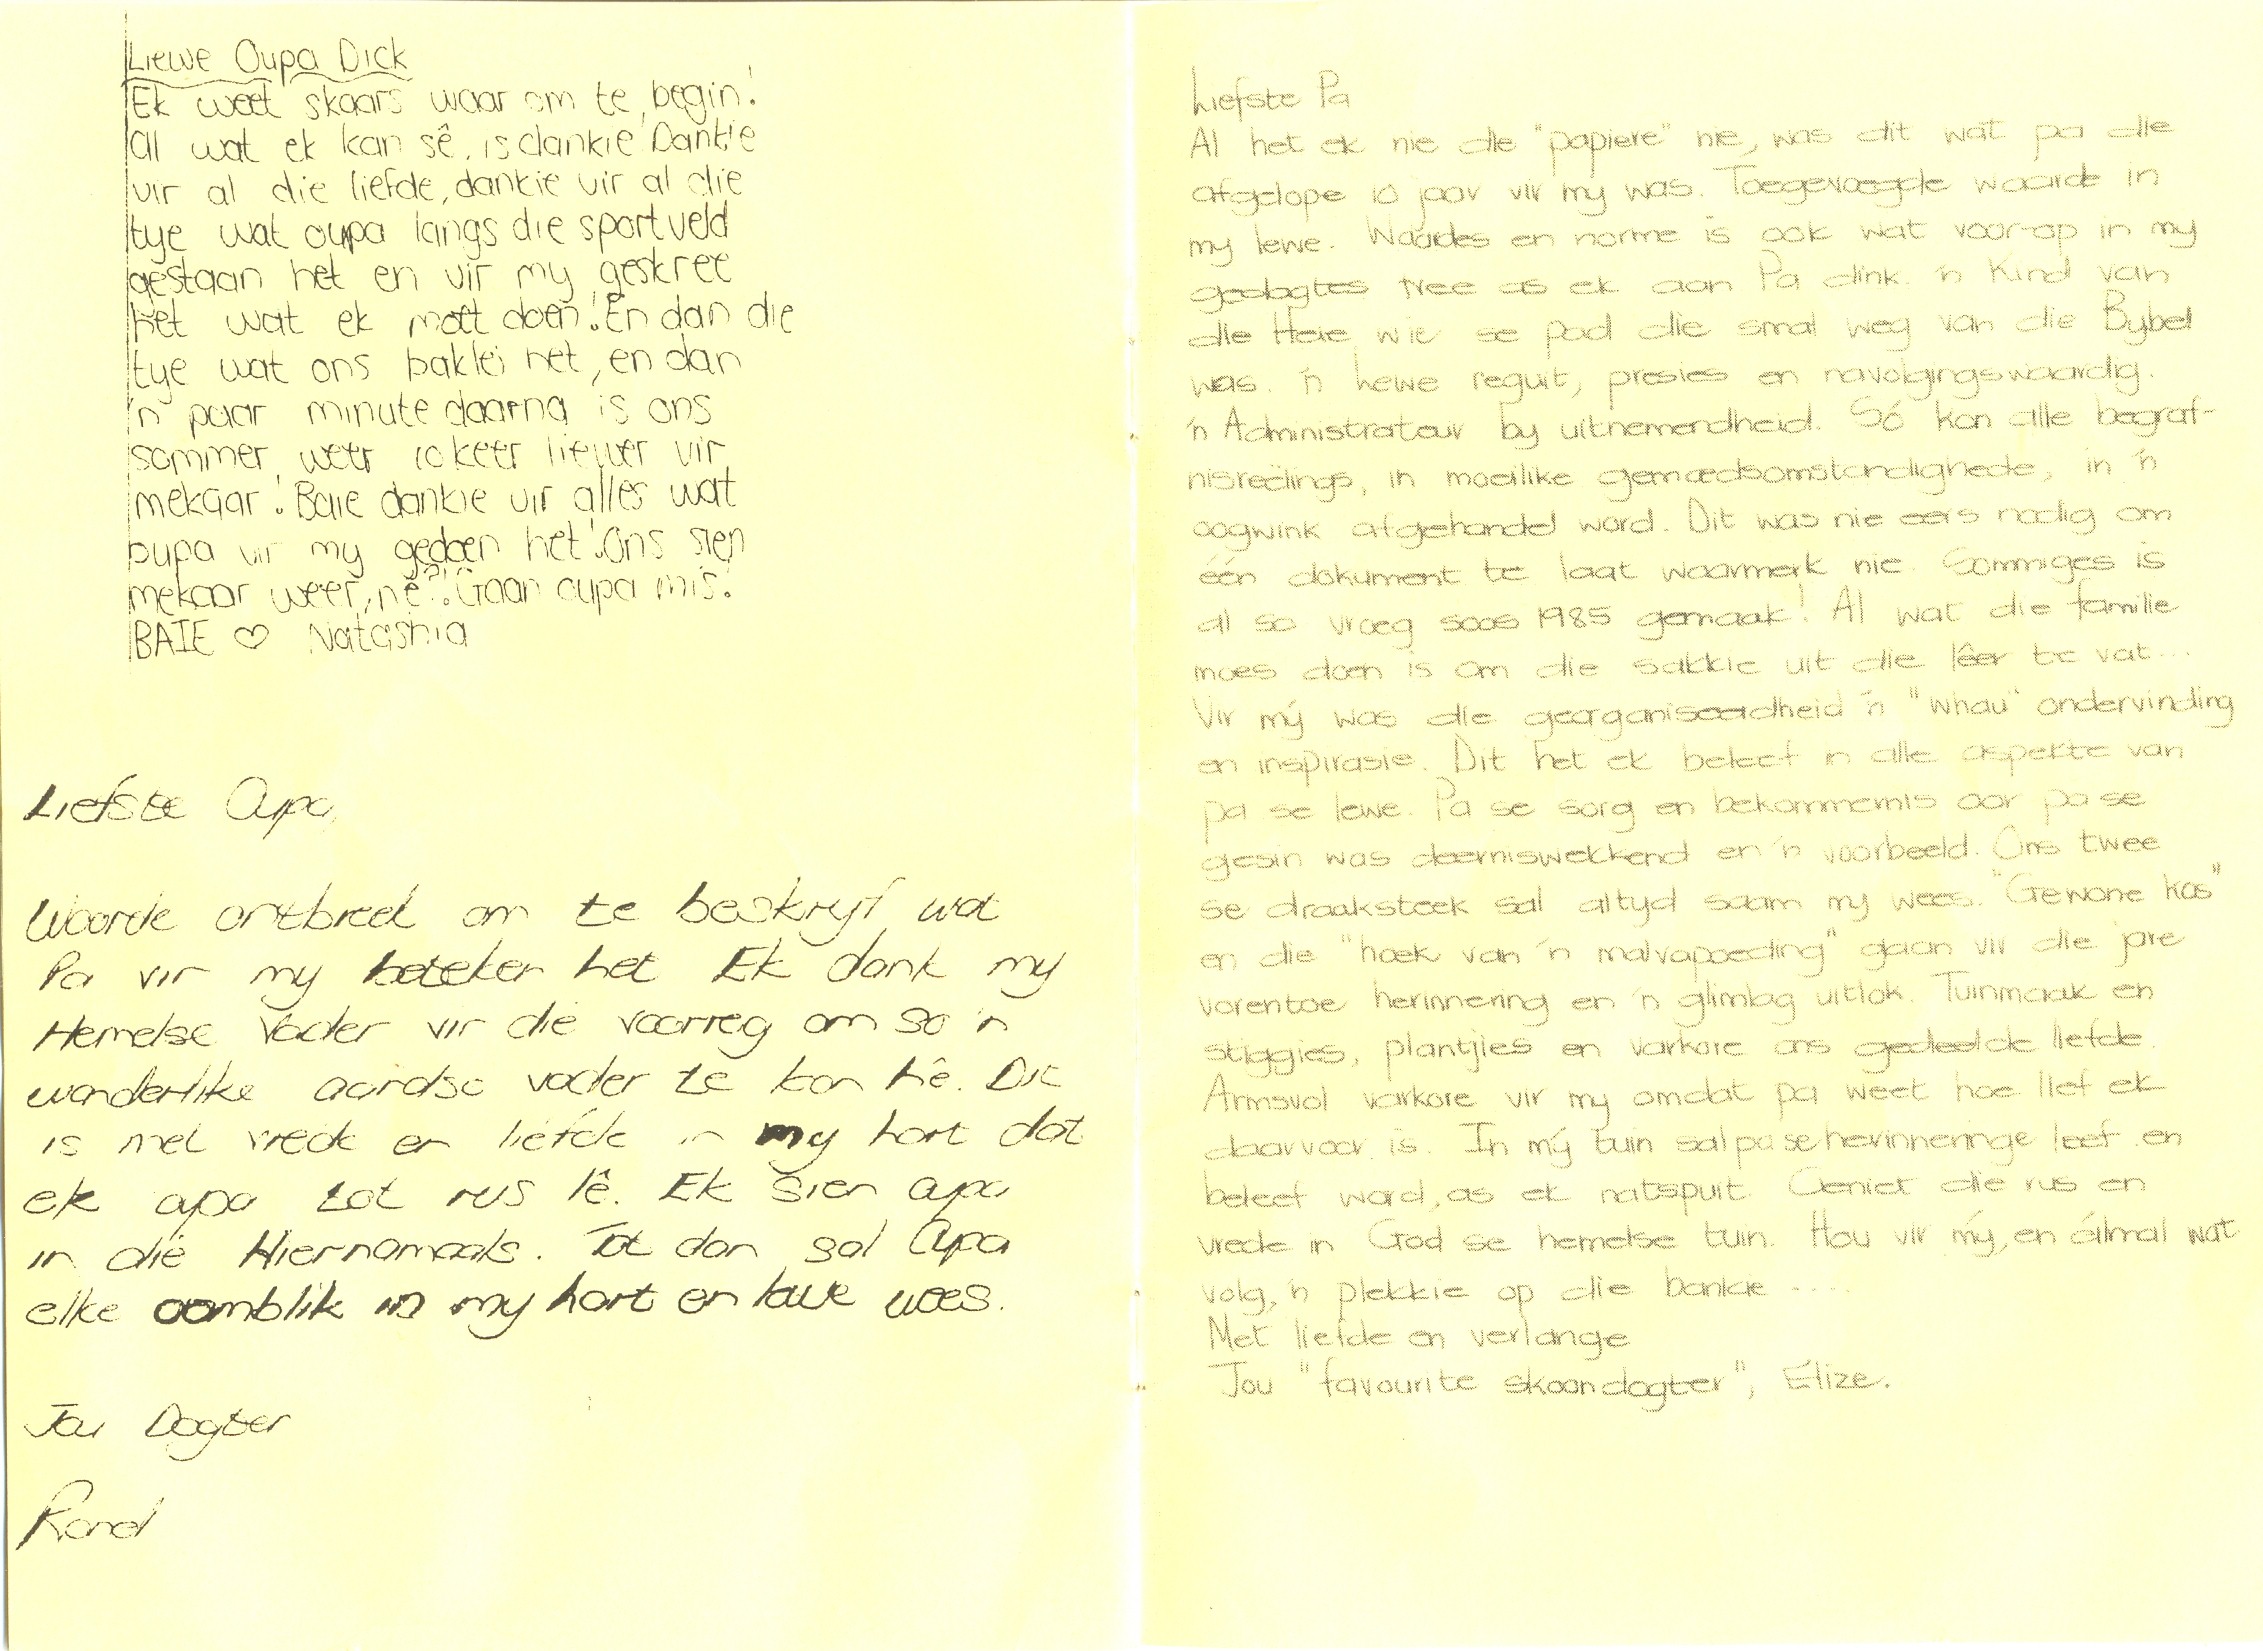 Liewe Oupa Dick
Ek weet skaars waar om te begin!
Al wat ek kan sê, is dankie! Dankie
vir al die liefde, dankie vir al die
tye wat oupa langs die sportveld
gestaan het en vir my geskree
het wat ek moet doen! En dan die
tye wat ons baklei het, en dan
'n paar minute daarna is ons
sommer weer 10 keer liewer vir
mekaar! Baie dankie vir alles wat
oupa vir my gedoen het! Ons sien
mekaar weer, nê?! Gaan oupa mis!
BAIE ♡ Natashia
Liefste Oupa,
Woorde ontbreek om te beskryf wat
Pa vir my beteken het Ek dank my
Hemelse Vader vir die voorreg om so 'n
wonderlike aardse vader te kon hê. Dit
is met vrede en liefde in my hart dat
ek oupa tot rus lê. Ek sien oupa
in die Hiernamaals. Tot dan sal Oupa
elke oomblik in my hart en lewe wees.
Jou Dogter
Liefste Pa
Al het ek nie die "papiere" nie, was dit wat pa die
afgelope 10 jaar vir my was. Toegevoegde waarde in
my lewe. Waardes en norme is ook wat voor-op in my
gedagtes tree as ek aan Pa dink. 'n Kind van
die Here wie se pad die smal weg van die Bybel
was. 'n Lewe reguit, presies en navolgingswaardig.
'n Administrateur by uitnemendheid. Só kon alle begraf-
nisreëlings, in moeilike gemoedsomstandighede, in 'n
oogwink afgehandel word. Dit was nie eers nodig om
één dokument te laat waarmerk nie. Sommiges is
al so vroeg soos 1985 gemaak! Al wat die familie
moes doen is om die sakkie uit die lêer te vat...
Vir mý was die georganiseerdheid 'n "whau" ondervinding
en inspirasie. Dit het ek beleef in alle aspekte van
pa se lewe. Pa se sorg en bekommernis oor pa se
gesin was deerniswekkend en 'n voorbeeld. Ons twee
se draaksteek sal altyd saam my wees. "Gewone kos"
en die "hoek van 'n malvapoeding" gaan vir die jare
vorentoe herinnering en 'n glimlag uitlok. Tuinmaak en
stiggies, plantjies en varkore ons gedeelde liefde.
Armsvol varkore vir my omdat pa weet hoe lief ek
daarvoor is. In mý tuin sal pa se herinneringe leef en
beleef word, as ek natspuit. Geniet die rus en
vrede in God se hemelse tuin. Hou vir mý, en álmal wat
volg, 'n plekkie op die bankie ....
Met liefde en verlange
Jou "favourite skoondogter", Elize.